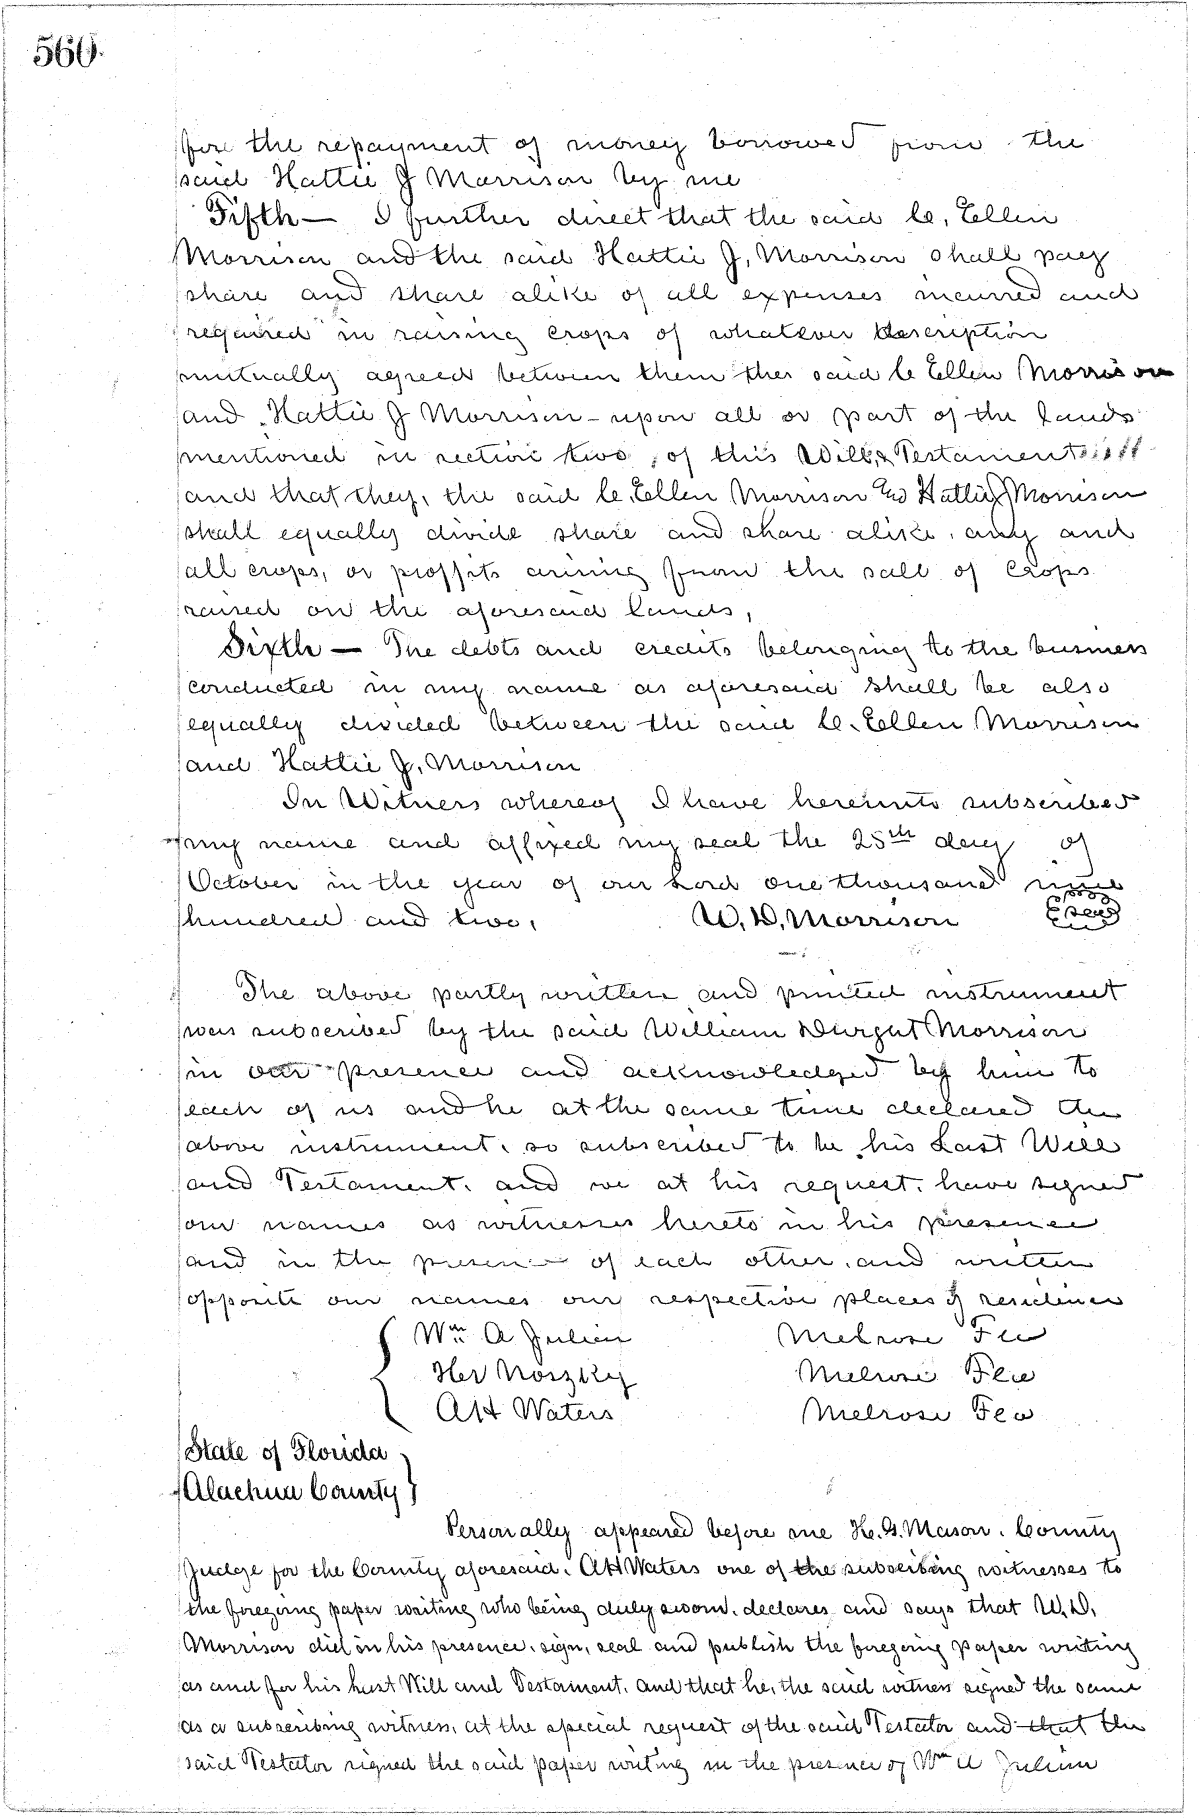 560.
for the repayment of money borrowed from the
said Hattie J Morrison by me
Fifth — I further direct that the said C. Ellen
Morrison and the said Hattie J, Morrison shall pay
share and share alike of all expenses incurred and
required in raising crops of whatever description
mutually agreed between them the said C Ellen Morrison
and Hattie J Morrison - upon all or part of the lands
mentioned in section two, of this Will, & Testament
and that they, the said C. Ellen Morrison and Hattie J Morrison
shall equally divide share and share alike, any and
all crops, or proffits arising from the sale of crops
raised on the aforesaid lands,
Sixth — The debts and credits belonging to the business
conducted in my name as aforesaid shall be also
equally divided between the said C. Ellen Morrison
and Hattie J, Morrison
In Witness whereof I have hereunto subscribed
my name and affixed my seal the 25th day of
October in the year of our Lord one thousand nine
hundred and two, W, D, Morrison seal
The above partly written and printed instrument
was subscribed by the said William Morrison
in our presence and acknowledged by him to
each of us and he at the same time declared the
above instrument, so subscribed to be his Last Will
and Testament, and we at his request, have signed
our names as witnesses hereto in his presence
and in the presence of each other, and written
opposite our names our respective places of residence
Wm A Julien Melrose Fla
Melrose Fla
AH Waters Melrose Fla
State of Florida }
Alachua County }
Personally appeared before me H. G. Mason, County
Judge for the County aforesaid, AH Waters one of the subscribing witnesses to
the foregoing paper writing who being duly sworn, declares and says that W, D,
Morrison did in his presence, sign, seal and publish the foregoing paper writing
as and for his last Will and Testament, and that he, the said witness signed the same
as a subscribing witness, at the special request of the said Testator and that the
said Testator signed the said paper writing in the presence of Wm A Julien